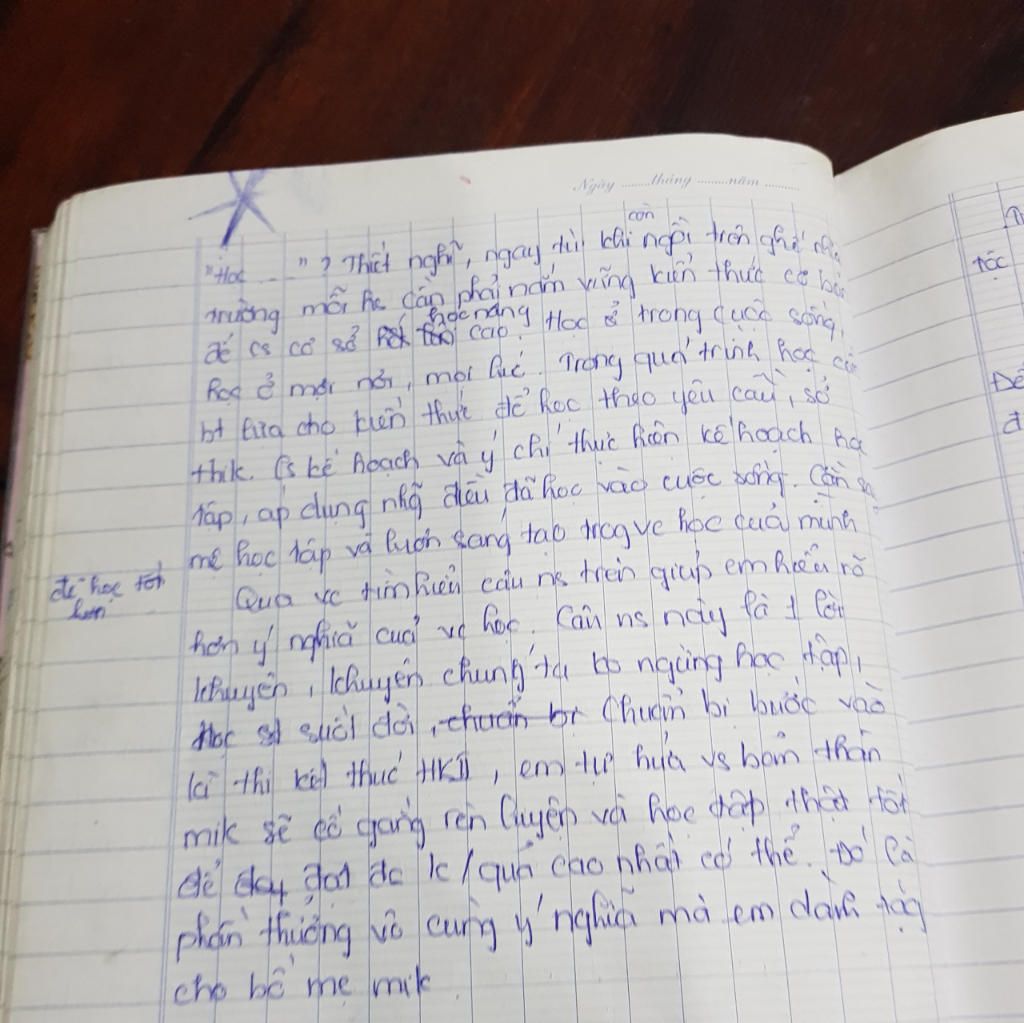 Ngày ........tháng ........năm ..........
còn
"Học ....."? Thiết nghĩ, ngay từ khi ngồi trên ghế nhà
trường mỗi hs cần phải nắm vững kiến thức cơ bản
học nâng
để cs cơ sở cao. Học ở trong cuộc sống,
học ở mọi nơi, mọi lúc. Trong quá trình học cần
bt lựa cho kiến thức để học theo yêu cầu, sở
thik. Cs kế hoạch và ý chí thực hiện kế hoạch học
tập, áp dụng nhg điều đã học vào cuộc sống. Cần say
mê học tập và luôn sáng tạo trog vc học của mình
để học tốt
hơn
Qua vc tìm hiểu câu ns trên giúp em hiểu rõ
hơn ý nghĩa của vc học. Câu ns này là 1 lời
khuyên, khuyên chúng ta ko ngừng học tập,
học suốt đời, chuẩn bị Chuẩn bị bước vào
kì thi kết thúc HKII, em tự hứa vs bản thân
mik sẽ cố gắng rèn luyện và học tập thật tốt
để đạt đc k/quả cao nhất có thể. Đó là
phần thưởng vô cùng ý nghĩa mà em dành tặg
cho bố mẹ mik
tộc
Để